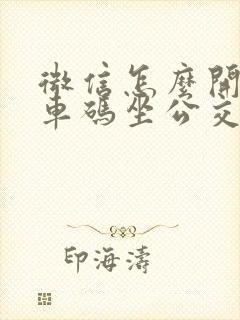 微信怎麼開
車碼坐公交
印海濤